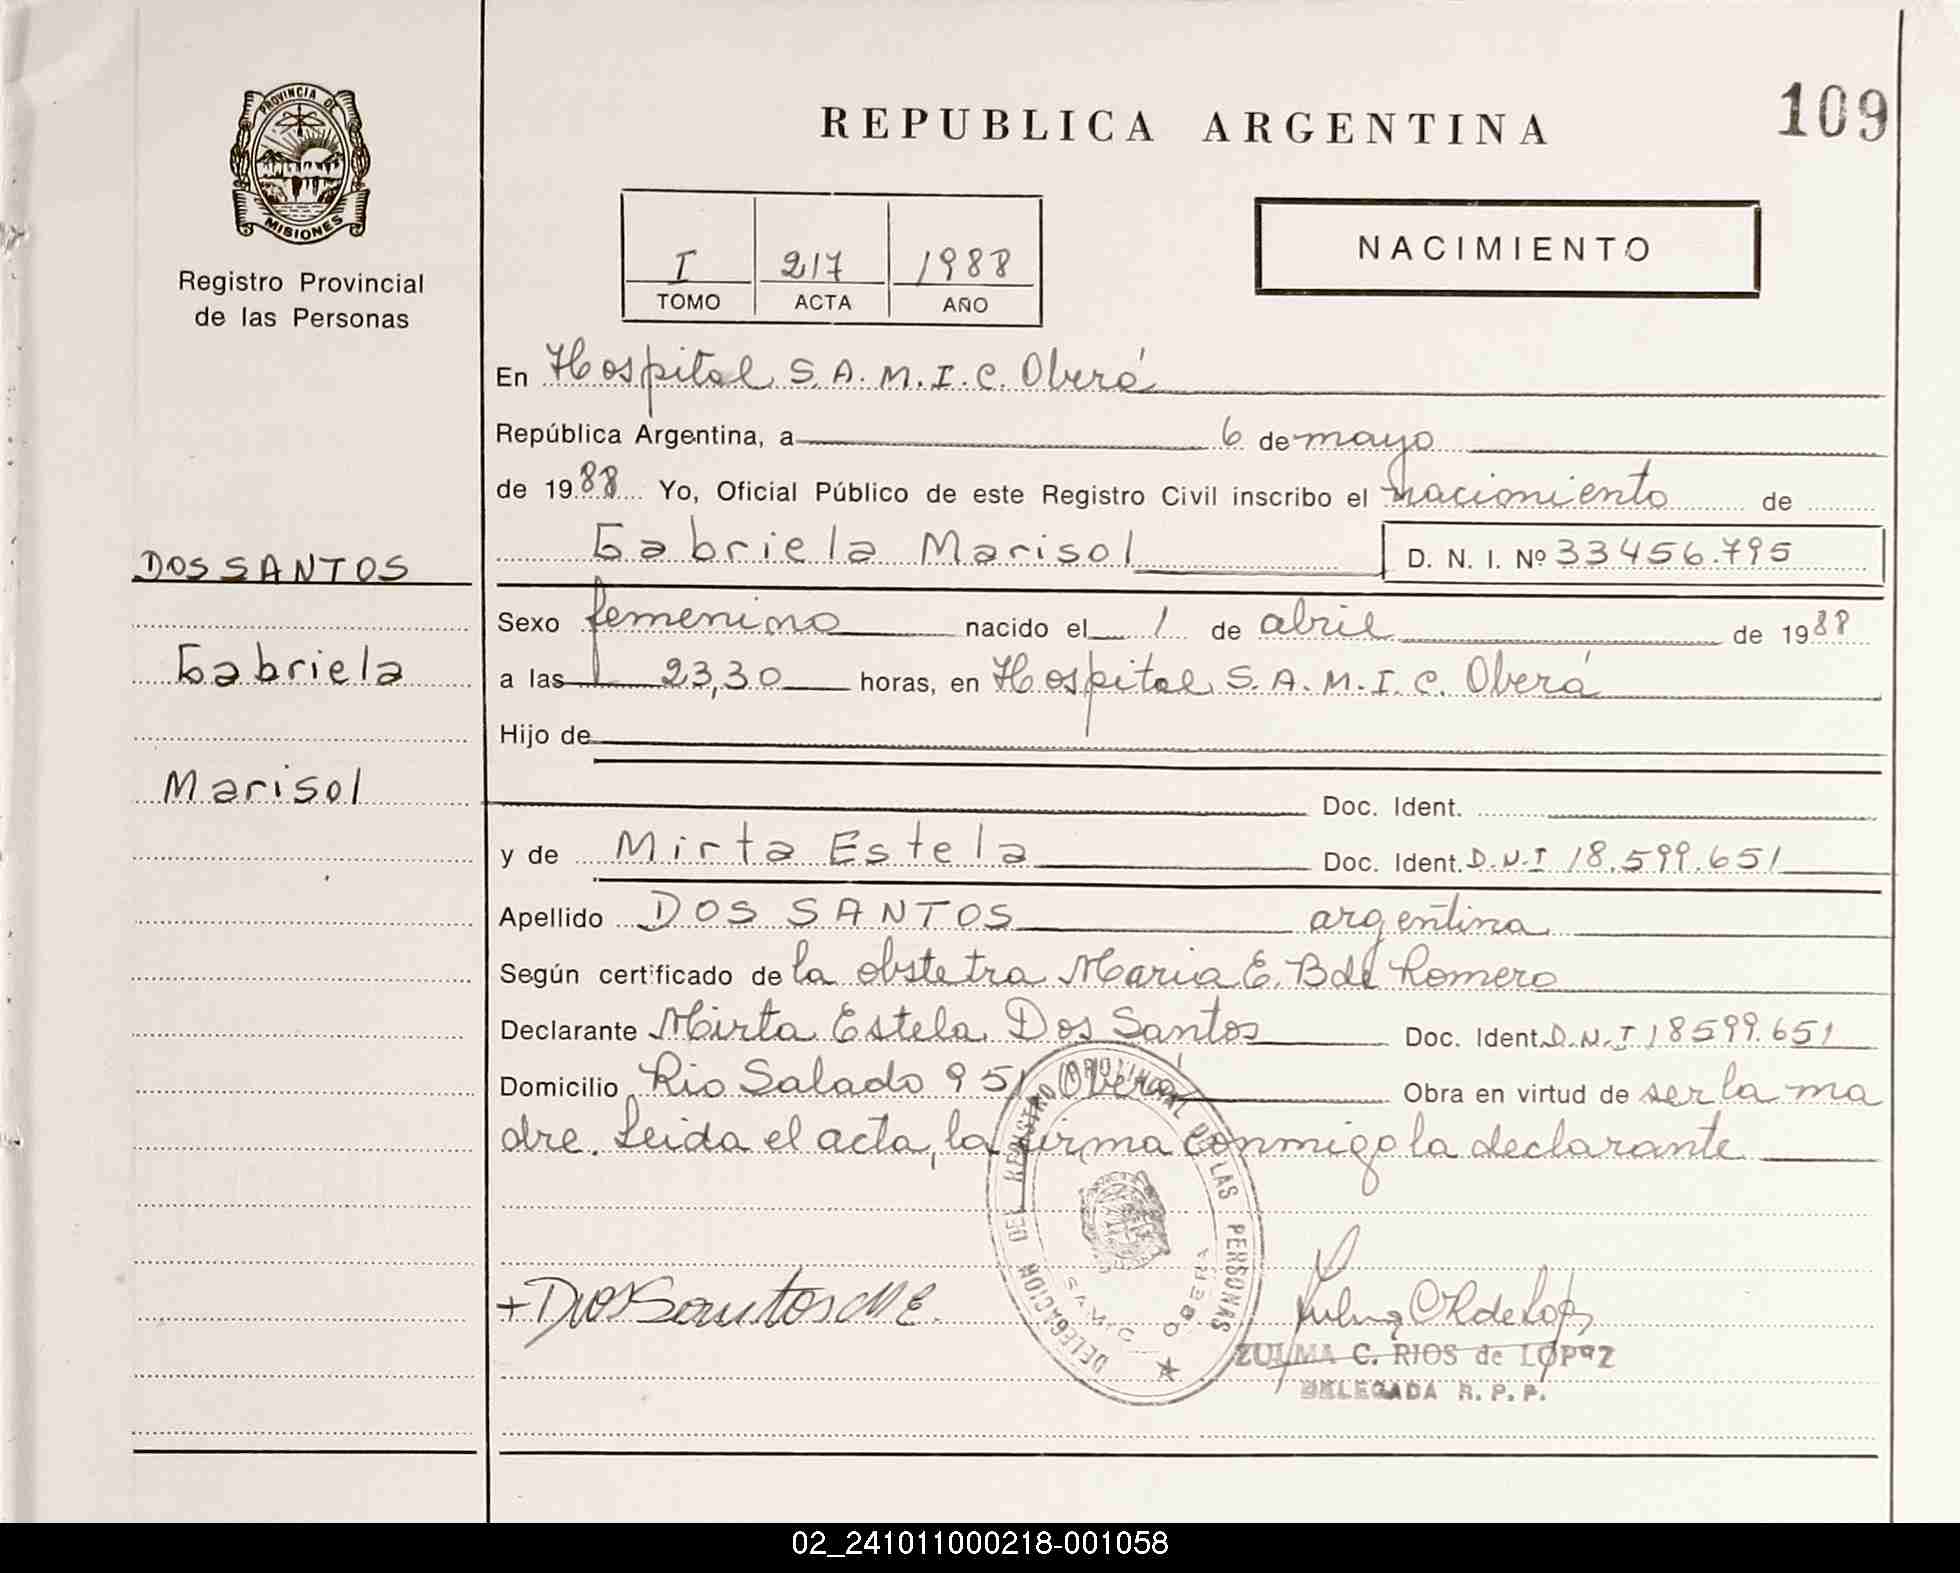 PROVINCIA DE
MISIONES
Registro Provincial
de las Personas
DOS SANTOS
Gabriela
Marisol
REPUBLICA ARGENTINA
109
I 217 1988
TOMO ACTA AÑO
NACIMIENTO
En Hospital S.A.M.I.C. Oberá
República Argentina, a 6 de mayo
de 1988 Yo, Oficial Público de este Registro Civil inscribo el nacimiento de
Gabriela Marisol D. N. I. Nº 33456.795
Sexo femenino nacido el 1 de abril de 1988
a las 23,30 horas, en Hospital S.A.M.I.C. Oberá
Hijo de
Doc. Ident.
y de Mirta Estela Doc. Ident. D.N.I 18.599.651
Apellido DOS SANTOS argentina
Según certificado de la obstetra Maria E. B de Romero
Declarante Mirta Estela Dos Santos Doc. Ident. D.N.I 18599.651
Domicilio Rio Salado 951 Oberá Obra en virtud de ser la ma
dre. Leida el acta, la firma conmigo la declarante
DELEGACION DEL REGISTRO PROVINCIAL DE LAS PERSONAS
S.A.M.I.C. OBERA
+ Dos Santos M E.
ZULMA C. RIOS de LOPEZ
DELEGADA R. P. P.
02_241011000218-001058